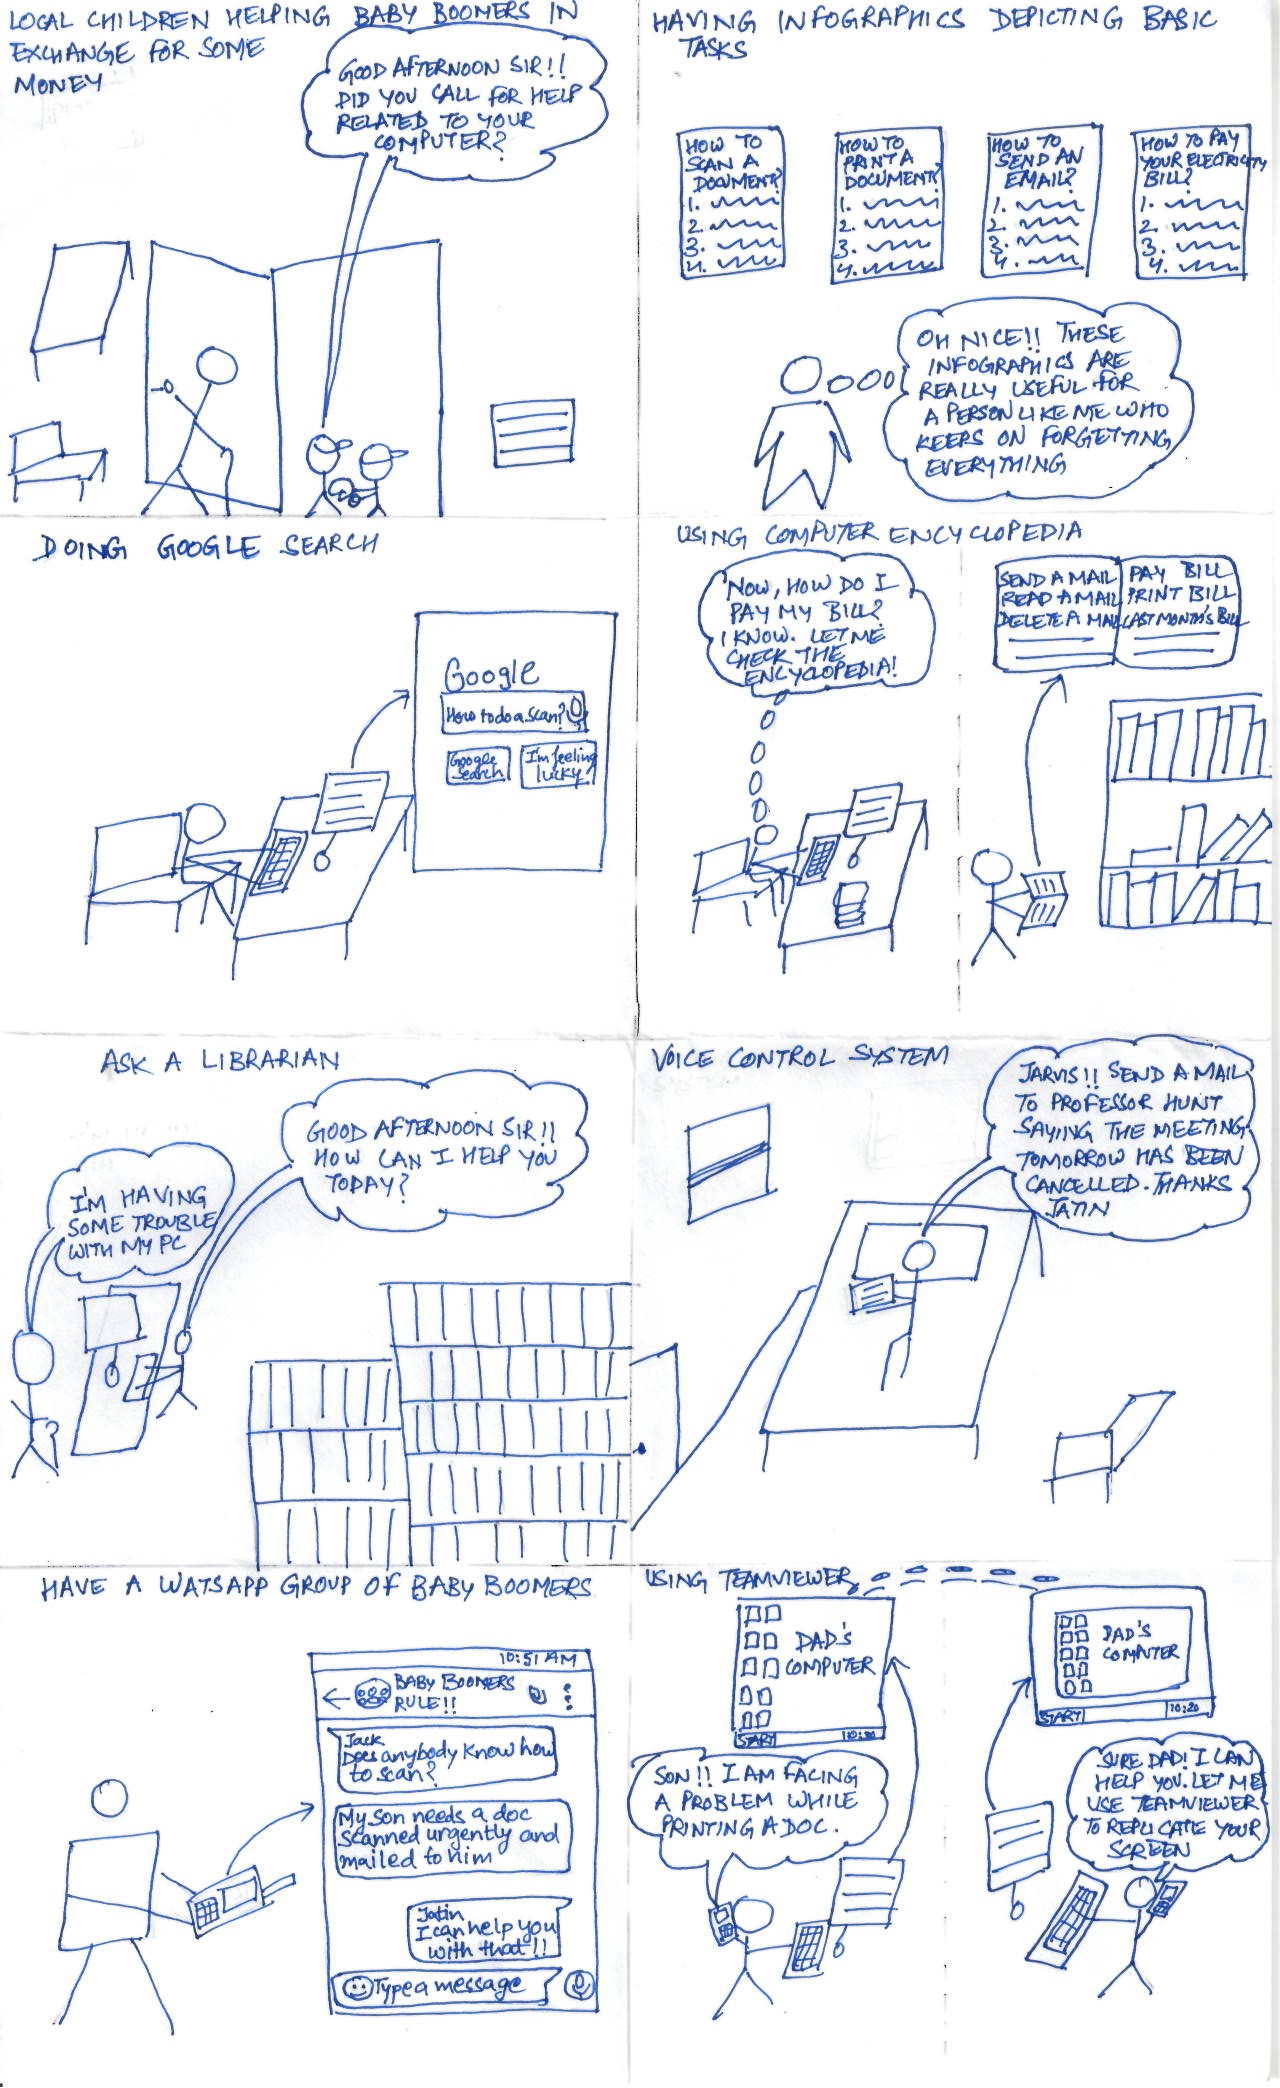 LOCAL CHILDREN HELPING BABY BOOMERS IN
EXCHANGE FOR SOME
MONEY
GOOD AFTERNOON SIR!!
DID YOU CALL FOR HELP
RELATED TO YOUR
COMPUTER?
HAVING INFOGRAPHICS DEPICTING BASIC
TASKS
HOW TO
SCAN A
DOCUMENT?
1.
2.
3.
4.
HOW TO
PRINT A
DOCUMENT?
1.
2.
3.
4.
HOW TO
SEND AN
EMAIL?
1.
2.
3.
4.
HOW TO PAY
YOUR ELECTRICITY
BILL?
1.
2.
3.
4.
OH NICE!! THESE
INFOGRAPHICS ARE
REALLY USEFUL FOR
A PERSON LIKE ME WHO
KEEPS ON FORGETTING
EVERYTHING
DOING GOOGLE SEARCH
Google
How to do a scan?
Google
Search
I'm feeling
lucky?
USING COMPUTER ENCYCLOPEDIA
NOW, HOW DO I
PAY MY BILL?
I KNOW. LET ME
CHECK THE
ENCYCLOPEDIA!
SEND A MAIL
READ A MAIL
DELETE A MAIL
PAY BILL
PRINT BILL
LAST MONTH'S BILL
ASK A LIBRARIAN
GOOD AFTERNOON SIR!!
HOW CAN I HELP YOU
TODAY?
I'M HAVING
SOME TROUBLE
WITH MY PC
VOICE CONTROL SYSTEM
JARVIS!! SEND A MAIL
TO PROFESSOR HUNT
SAYING THE MEETING
TOMORROW HAS BEEN
CANCELLED. THANKS
JATIN
HAVE A WATSAPP GROUP OF BABY BOOMERS
10:51 AM
BABY BOOMERS
RULE!!
Jack
Does anybody know how
to scan?
My son needs a doc
scanned urgently and
mailed to him
Jatin
I can help you
with that!!
Type a message
USING TEAMVIEWER
DAD'S
COMPUTER
START
10:20
SON!! I AM FACING
A PROBLEM WHILE
PRINTING A DOC.
DAD'S
COMPUTER
START
10:20
SURE DAD! I CAN
HELP YOU. LET ME
USE TEAMVIEWER
TO REPLICATE YOUR
SCREEN